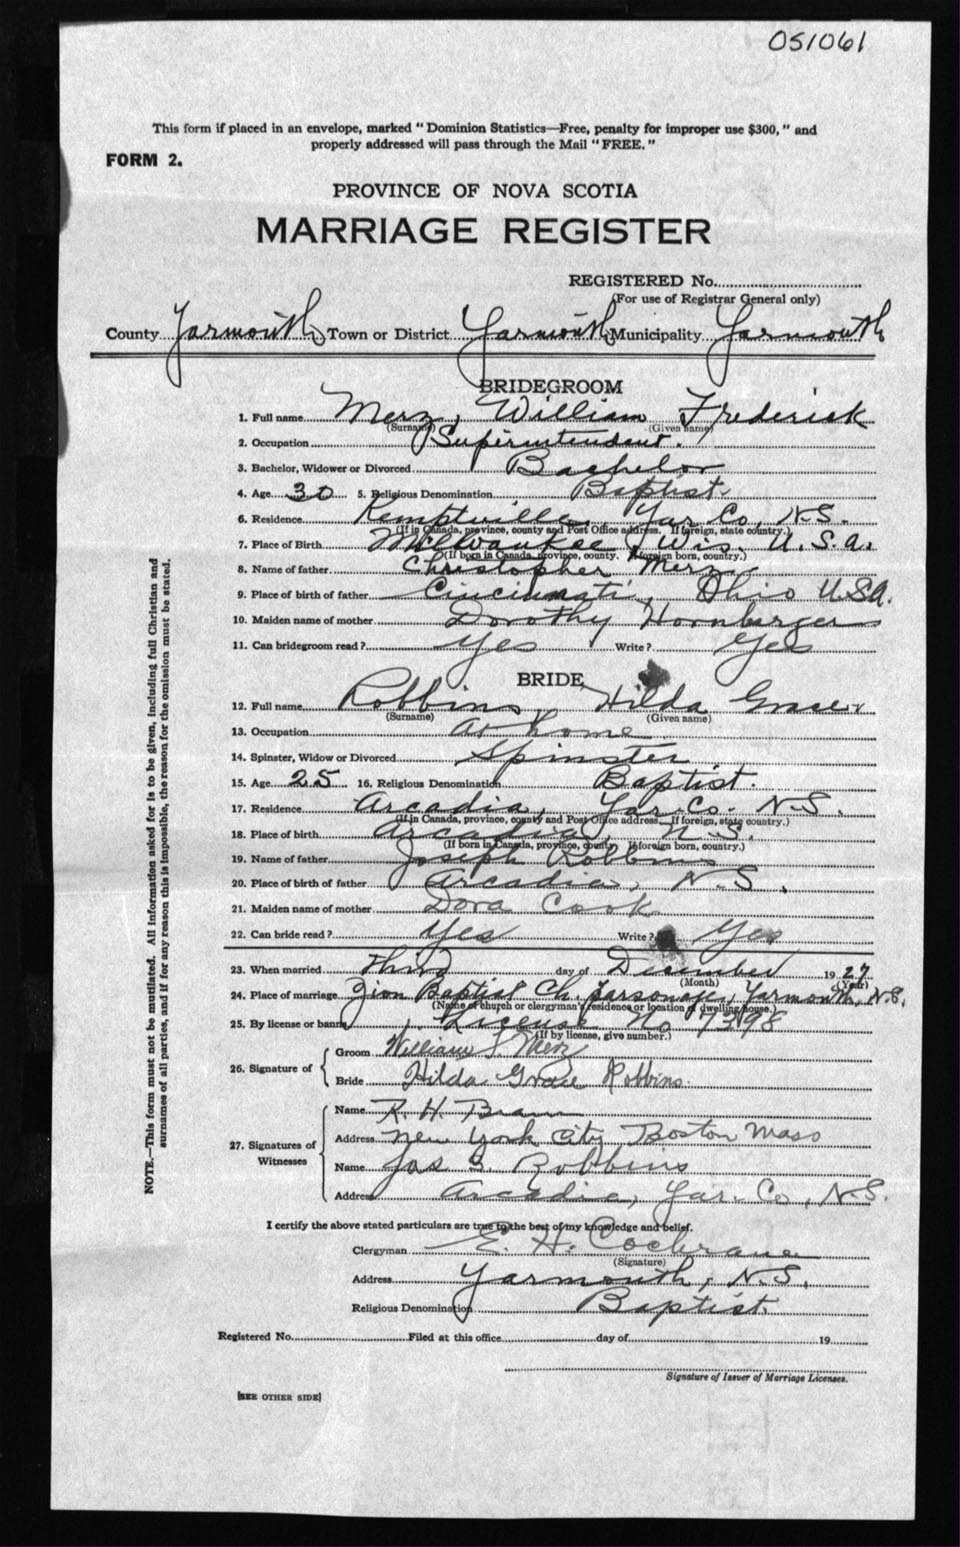 051061
This form if placed in an envelope, marked "Dominion Statistics—Free, penalty for improper use $300," and
properly addressed will pass through the Mail "FREE."
FORM 2.
PROVINCE OF NOVA SCOTIA
MARRIAGE REGISTER
REGISTERED No.
(For use of Registrar General only)
County Yarmouth Town or District Yarmouth Municipality Yarmouth
BRIDEGROOM
1. Full name Merz, William Frederick
(Surname) (Given name)
2. Occupation Superintendent.
3. Bachelor, Widower or Divorced Bachelor
4. Age 30 5. Religious Denomination Baptist.
6. Residence Kemptville, Yar. Co, N.S.
(If in Canada, province, county and Post Office address. If foreign, state country.)
7. Place of Birth Milwaukee, Wis. U.S.A.
(If born in Canada, province, county. If foreign born, country.)
8. Name of father Christopher Merz
9. Place of birth of father Cincinnati, Ohio USA.
10. Maiden name of mother Dorothy Hornberger
11. Can bridegroom read? Yes Write? Yes
BRIDE
12. Full name Robbins, Hilda Grace
(Surname) (Given name)
13. Occupation At home
14. Spinster, Widow or Divorced Spinster
15. Age 25 16. Religious Denomination Baptist.
17. Residence Arcadia, Yar. Co. N.S.
(If in Canada, province, county and Post Office address. If foreign, state country.)
18. Place of birth Arcadia, N.S.
(If born in Canada, province, county. If foreign born, country.)
19. Name of father Joseph Robbins
20. Place of birth of father Arcadia, N.S.
21. Maiden name of mother Dora Cook
22. Can bride read? Yes Write? Yes
23. When married Third day of December 1927
(Month) (Year)
24. Place of marriage Zion Baptist Ch. Parsonage, Yarmouth, N.S.
(Name of church or clergyman's residence or location of dwelling house.)
25. By license or banns License No 7398
(If by license, give number.)
26. Signature of
Groom William F. Merz
Bride Hilda Grace Robbins.
27. Signatures of Witnesses
Name R. H.
Address New York City Boston Mass
Name Jas S. Robbins
Address Arcadia, Yar. Co, N.S.
I certify the above stated particulars are true to the best of my knowledge and belief.
Clergyman E. H. Cochrane
(Signature)
Address Yarmouth, N.S.
Religious Denomination Baptist.
Registered No. Filed at this office day of 19
Signature of Issuer of Marriage Licenses.
[SEE OTHER SIDE]
NOTE.—This form must not be mutilated. All information asked for is to be given, including full Christian and
surnames of all parties, and if for any reason this is impossible, the reason for the omission must be stated.